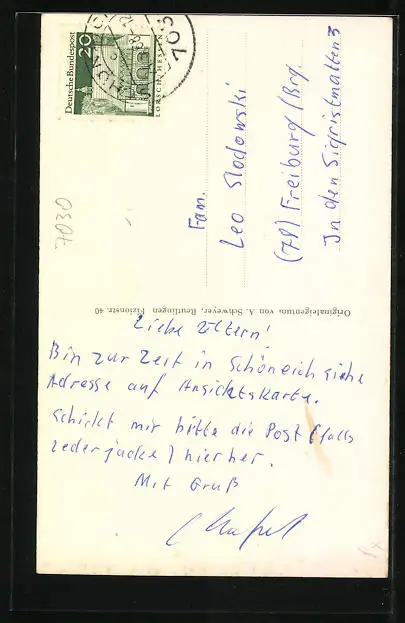 Deutsche Bundespost
20
LORSCH/HESSEN
703
7030
Fam.
Leo Slodowski
(78) Freiburg/Brg.
In den Sigristmatten 5
Originaleigentum von A. Schweyer, Reutlingen Pizionstr. 40
Liebe Eltern!
Bin zur Zeit in Schöneich siehe
Adresse auf Ansichtskarte.
Schickt mir bitte die Post (falls
Lederjacke) hierher.
Mit Gruß